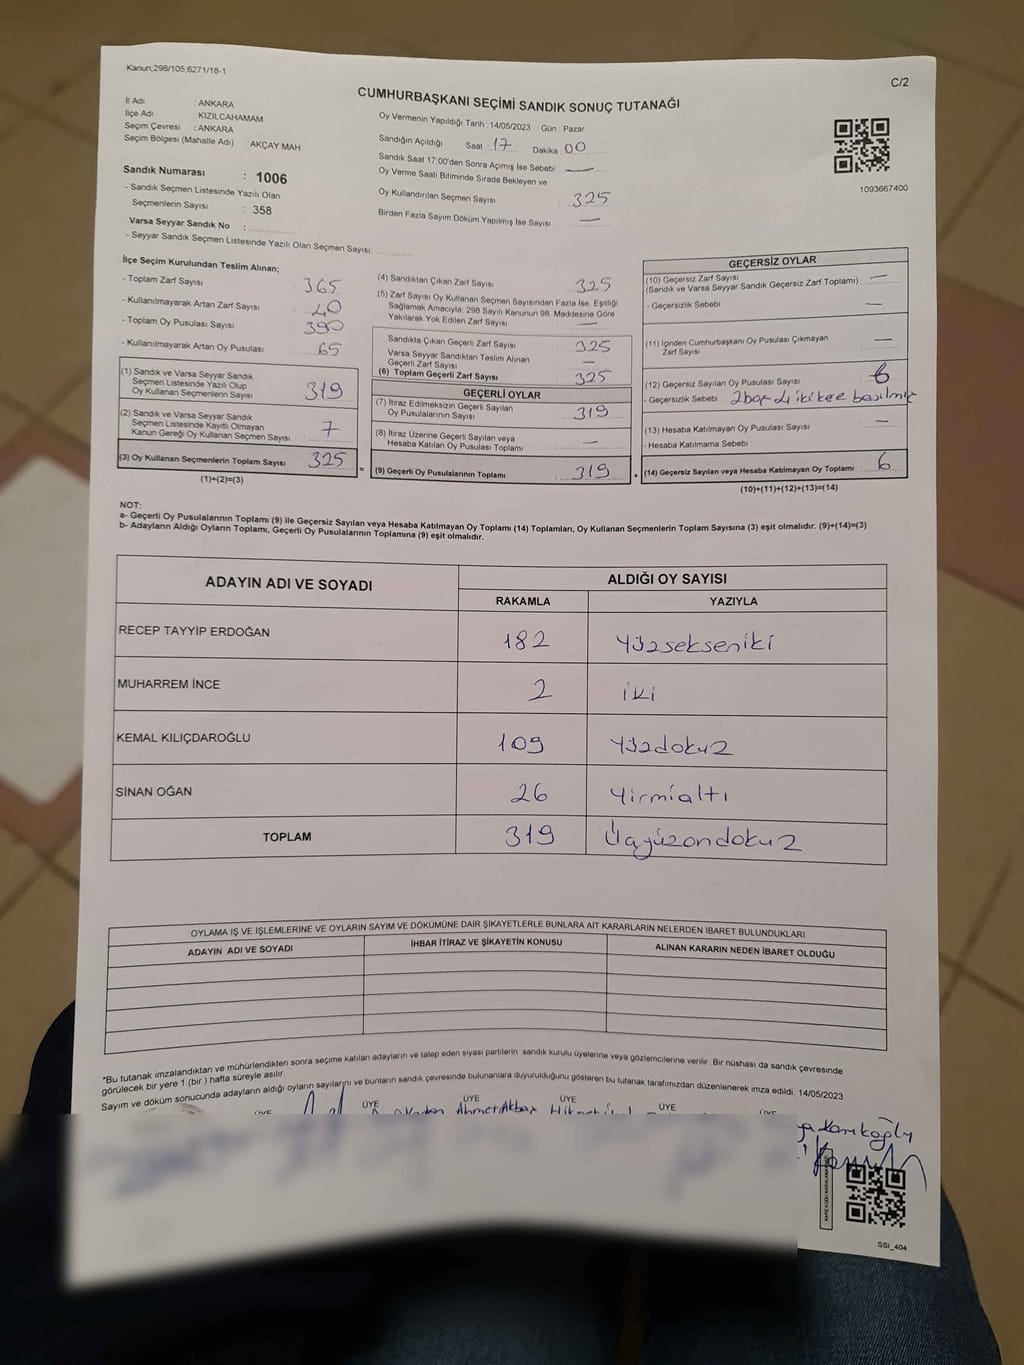 Kanun;298/105;6271/18-1
C/2
CUMHURBAŞKANI SEÇİMİ SANDIK SONUÇ TUTANAĞI
İl Adı : ANKARA
İlçe Adı : KIZILCAHAMAM
Seçim Çevresi : ANKARA
Seçim Bölgesi (Mahalle Adı) : AKÇAY MAH.
Oy Vermenin Yapıldığı Tarih : 14/05/2023 Gün : Pazar
Sandığın Açıldığı Saat 17 Dakika 00
Sandık Saat 17:00'den Sonra Açımış İse Sebebi : —
Oy Verme Saati Bitiminde Sırada Bekleyen ve
Oy Kullandırılan Seçmen Sayısı : 325
Birden Fazla Sayım Döküm Yapılmış İse Sayısı : —
1093667400
Sandık Numarası : 1006
- Sandık Seçmen Listesinde Yazılı Olan
Seçmenlerin Sayısı : 358
Varsa Seyyar Sandık No :
- Seyyar Sandık Seçmen Listesinde Yazılı Olan Seçmen Sayısı:
İlçe Seçim Kurulundan Teslim Alınan;
- Toplam Zarf Sayısı : 365
- Kullanılmayarak Artan Zarf Sayısı : 40
- Toplam Oy Pusulası Sayısı : 390
- Kullanılmayarak Artan Oy Pusulası : 65
(1) Sandık ve Varsa Seyyar Sandık
Seçmen Listesinde Yazılı Olup
Oy Kullanan Seçmenlerin Sayısı : 319
(2) Sandık ve Varsa Seyyar Sandık
Seçmen Listesinde Kayıtlı Olmayan
Kanun Gereği Oy Kullanan Seçmen Sayısı : 7
(3) Oy Kullanan Seçmenlerin Toplam Sayısı : 325
(1)+(2)=(3)
=
(4) Sandıktan Çıkan Zarf Sayısı : 325
(5) Zarf Sayısı Oy Kullanan Seçmen Sayısından Fazla İse, Eşitliği
Sağlamak Amacıyla; 298 Sayılı Kanunun 98. Maddesine Göre
Yakılarak Yok Edilen Zarf Sayısı : —
Sandıkta Çıkan Geçerli Zarf Sayısı : 325
Varsa Seyyar Sandıktan Teslim Alınan
Geçerli Zarf Sayısı : —
(6) Toplam Geçerli Zarf Sayısı : 325
GEÇERLİ OYLAR
(7) İtiraz Edilmeksizin Geçerli Sayılan
Oy Pusulalarının Sayısı : 319
(8) İtiraz Üzerine Geçerli Sayılan veya
Hesaba Katılan Oy Pusulası Toplamı : —
(9) Geçerli Oy Pusulalarının Toplamı : 319
+
GEÇERSİZ OYLAR
(10) Geçersiz Zarf Sayısı
(Sandık ve Varsa Seyyar Sandık Geçersiz Zarf Toplamı) : —
- Geçersizlik Sebebi : —
(11) İçinden Cumhurbaşkanı Oy Pusulası Çıkmayan
Zarf Sayısı : —
(12) Geçersiz Sayılan Oy Pusulası Sayısı : 6
- Geçersizlik Sebebi : 2boş 4 iki kere basılmış
(13) Hesaba Katılmayan Oy Pusulası Sayısı : —
- Hesaba Katılmama Sebebi :
(14) Geçersiz Sayılan veya Hesaba Katılmayan Oy Toplamı : 6
(10)+(11)+(12)+(13)=(14)
NOT:
a- Geçerli Oy Pusulalarının Toplamı (9) ile Geçersiz Sayılan veya Hesaba Katılmayan Oy Toplamı (14) Toplamları, Oy Kullanan Seçmenlerin Toplam Sayısına (3) eşit olmalıdır. (9)+(14)=(3)
b- Adayların Aldığı Oyların Toplamı, Geçerli Oy Pusulalarının Toplamına (9) eşit olmalıdır.
ADAYIN ADI VE SOYADI
ALDIĞI OY SAYISI
RAKAMLA YAZIYLA
RECEP TAYYİP ERDOĞAN 182 Yüzsekseniki
MUHARREM İNCE 2 iki
KEMAL KILIÇDAROĞLU 109 Yüzdokuz
SİNAN OĞAN 26 Yirmialtı
TOPLAM 319 Üçyüzondokuz
OYLAMA İŞ VE İŞLEMLERİNE VE OYLARIN SAYIM VE DÖKÜMÜNE DAİR ŞİKAYETLERLE BUNLARA AİT KARARLARIN NELERDEN İBARET BULUNDUKLARI
ADAYIN ADI VE SOYADI İHBAR İTİRAZ VE ŞİKAYETİN KONUSU ALINAN KARARIN NEDEN İBARET OLDUĞU
*Bu tutanak imzalandıktan ve mühürlendikten sonra seçime katılan adayların ve talep eden siyasi partilerin sandık kurulu üyelerine veya gözlemcilerine verilir. Bir nüshası da sandık çevresinde
görülecek bir yere 1 (bir) hafta süreyle asılır.
Sayım ve döküm sonucunda adayların aldığı oyların sayılarını ve bunların sandık çevresinde bulunanlara duyurulduğunu gösteren bu tutanak tarafımızdan düzenlenerek imza edildi. 14/05/2023
ÜYE ÜYE ÜYE ÜYE
Ahmet Akbaş
SSI_404